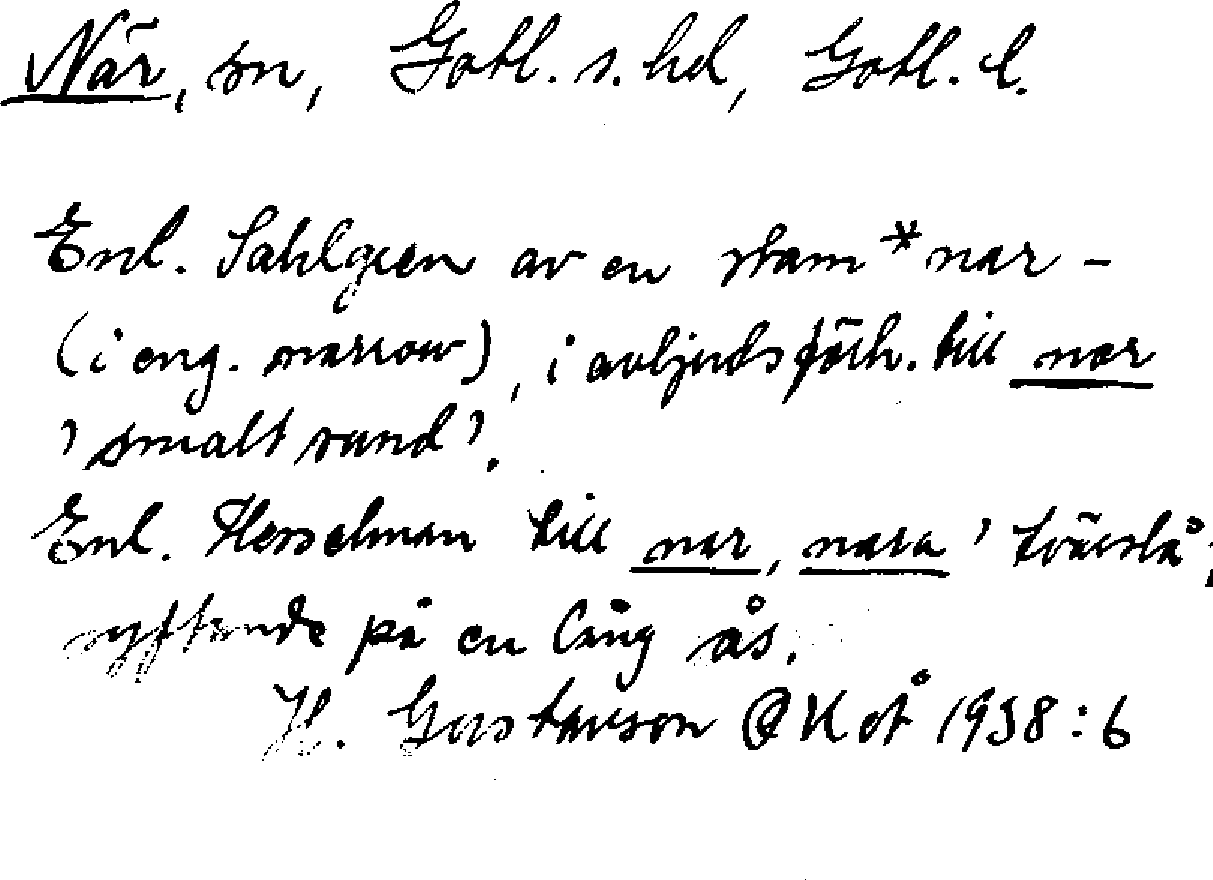 När, sn, Gotl. s. hd, Gotl. l.
Enl. Sahlgren av en stam *nar-
(i eng. narrow), i avljudsförh. till nor
'smalt sund'.
Enl. Hesselman till nar, nara 'tvärslå',
syftande på en lång ås.
H. Gustavson GKoÅ 1938:6